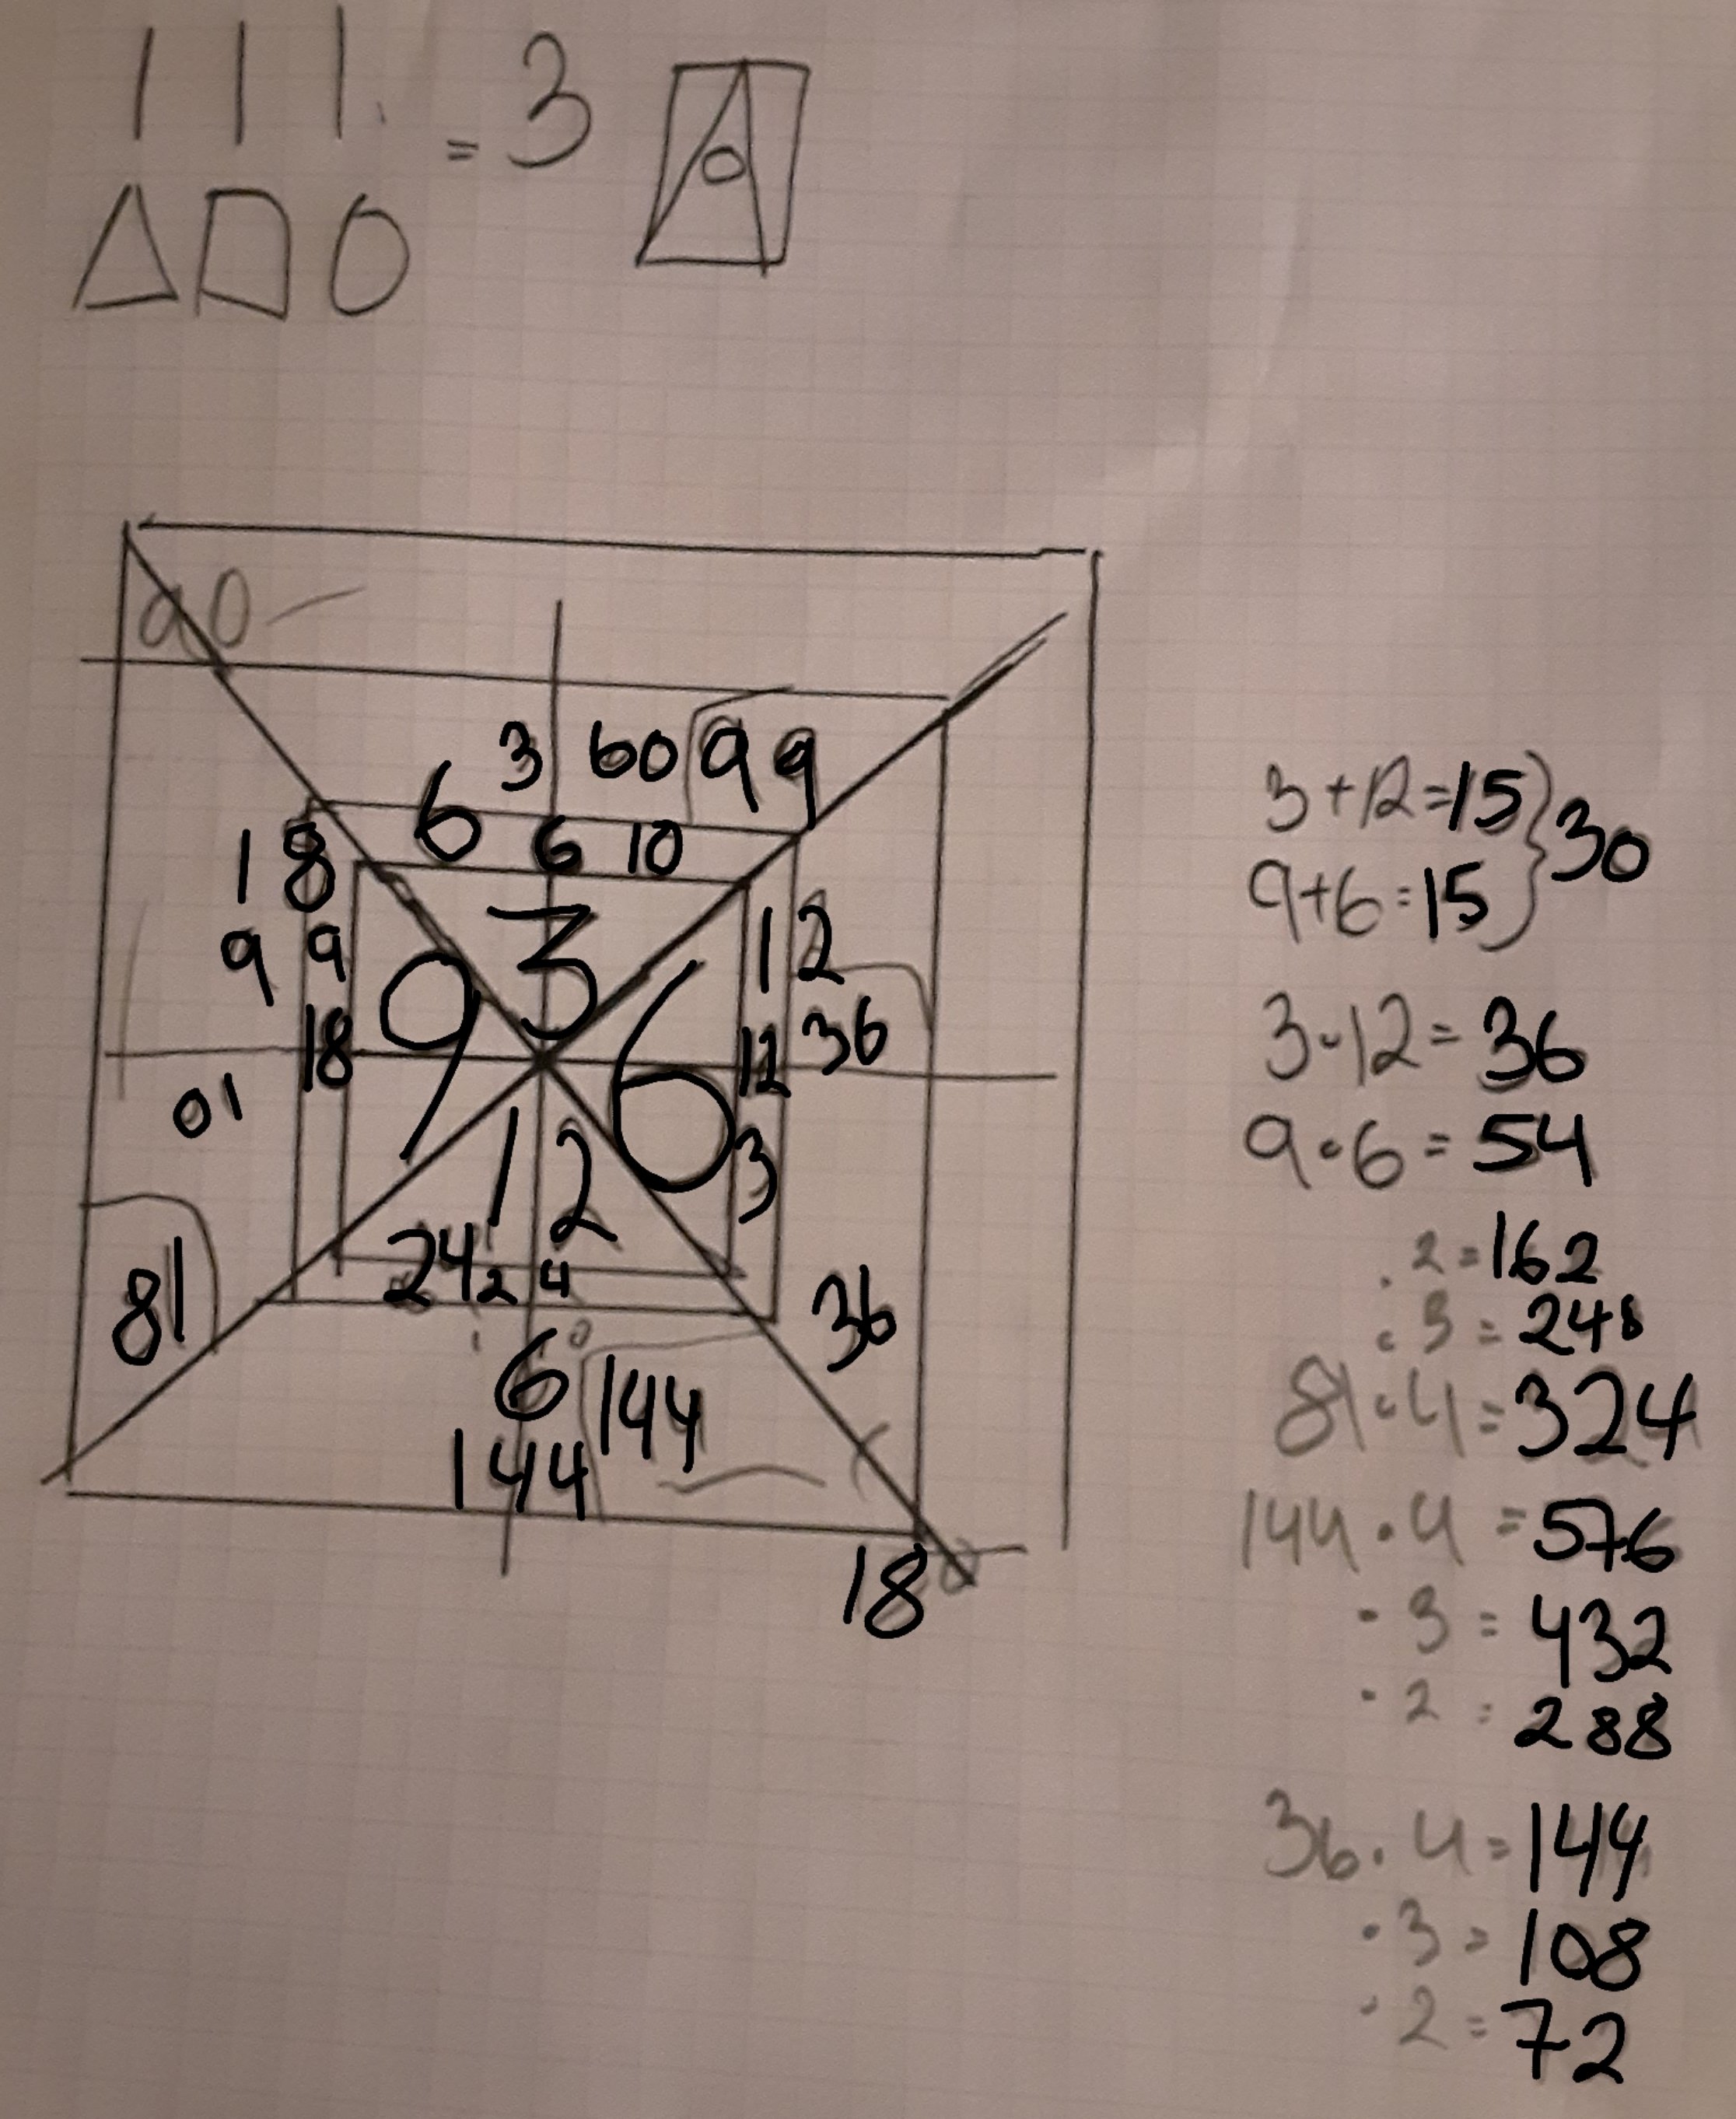 111. = 3
90
3 60 9 9
6
6 10
18
9 9
18
9 3 6
12
12 36
3
01
12
24 2 4
81
36
6
144
144
18
3+12=15
9+6=15
30
3·12=36
9·6=54
·2=162
·3=248
81·4=324
144·4=576
·3=432
·2=288
36·4=144
·3=108
·2=72